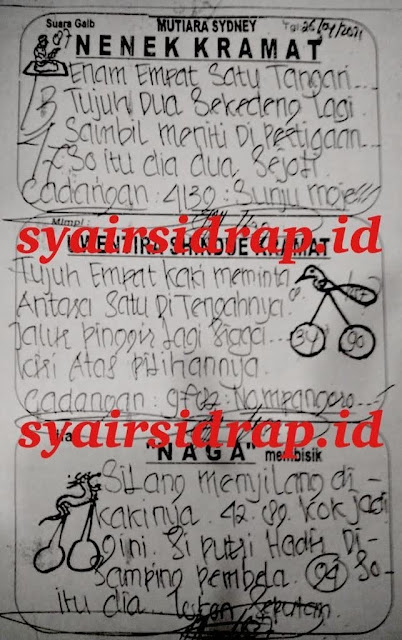 Suara Gaib MUTIARA SYDNEY Tgl: 26/04/2021
NENEK KRAMAT
Enam Empat Satu Tangan....
Tujuh Dua Sekedeng Lagi
Sambil meniti Di Pertigaan...
So itu dia dua Sejoli.
Cadangan : 4130 :
Mimpi :
syairsidrap.id
KRAMAT
Tujuh Empat kaki meminta
Antara Satu Di Tengahnya.
Jalur pinggir Lagi
34 90
kiri Atas Pilihannya.
Cadangan :
syairsidrap.id
"NAGA" membisik
Silang menyilang di -
kakinya. 42. 89. kok jadi
gini. Si putri Hadir Di -
Samping pembela. 94 So -
itu dia